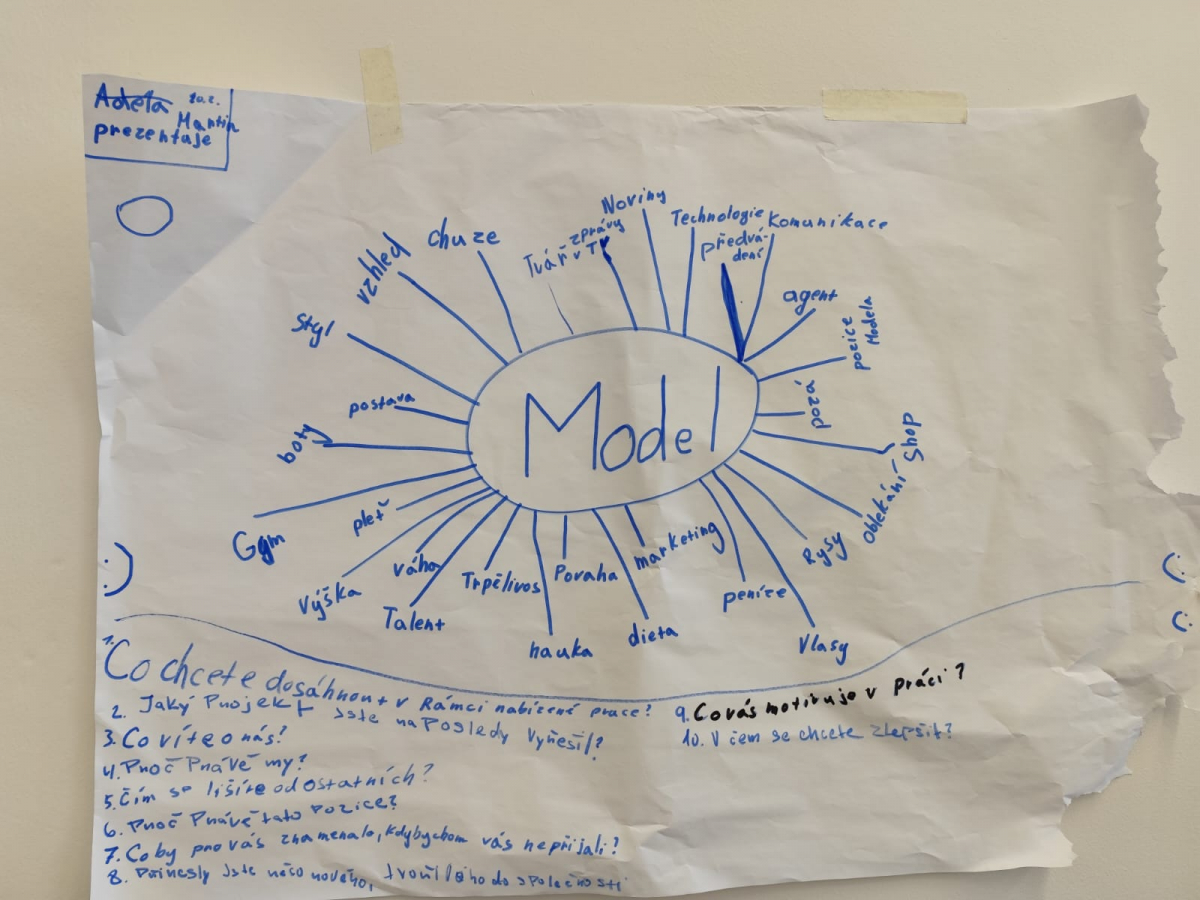 Adéla 20.2.
Martin
prezentuje
Noviny
Technologie
Komunikace
zprávy
Tvář v T
předvá-
dení
chuze
vzhled
agent
styl
pozice
Modela
postava
pozá
boty
Shop
Model
Oblékání
pleť
Gym
Rysy
marketing
váha
Trpělivos
Povaha
Výška
peníze
Talent
dieta
hauka
Vlasy
:)
(:
(:
1. Co chcete dosáhnout v Rámci nabízené prace?
2. Jaký Projekt jste naposledy Vyřešil?
3. Co víte o nás?
4. Proč Právě my?
5. Čím se lišíte od ostatních?
6. Proč Právě tato Pozice?
7. Co by pro vás znamenalo, kdybychom vás nepřijali?
8. Přinesly jste něco nového, do společnosti
9. Co vás motivuje v práci?
10. V čem se chcete zlepšit?